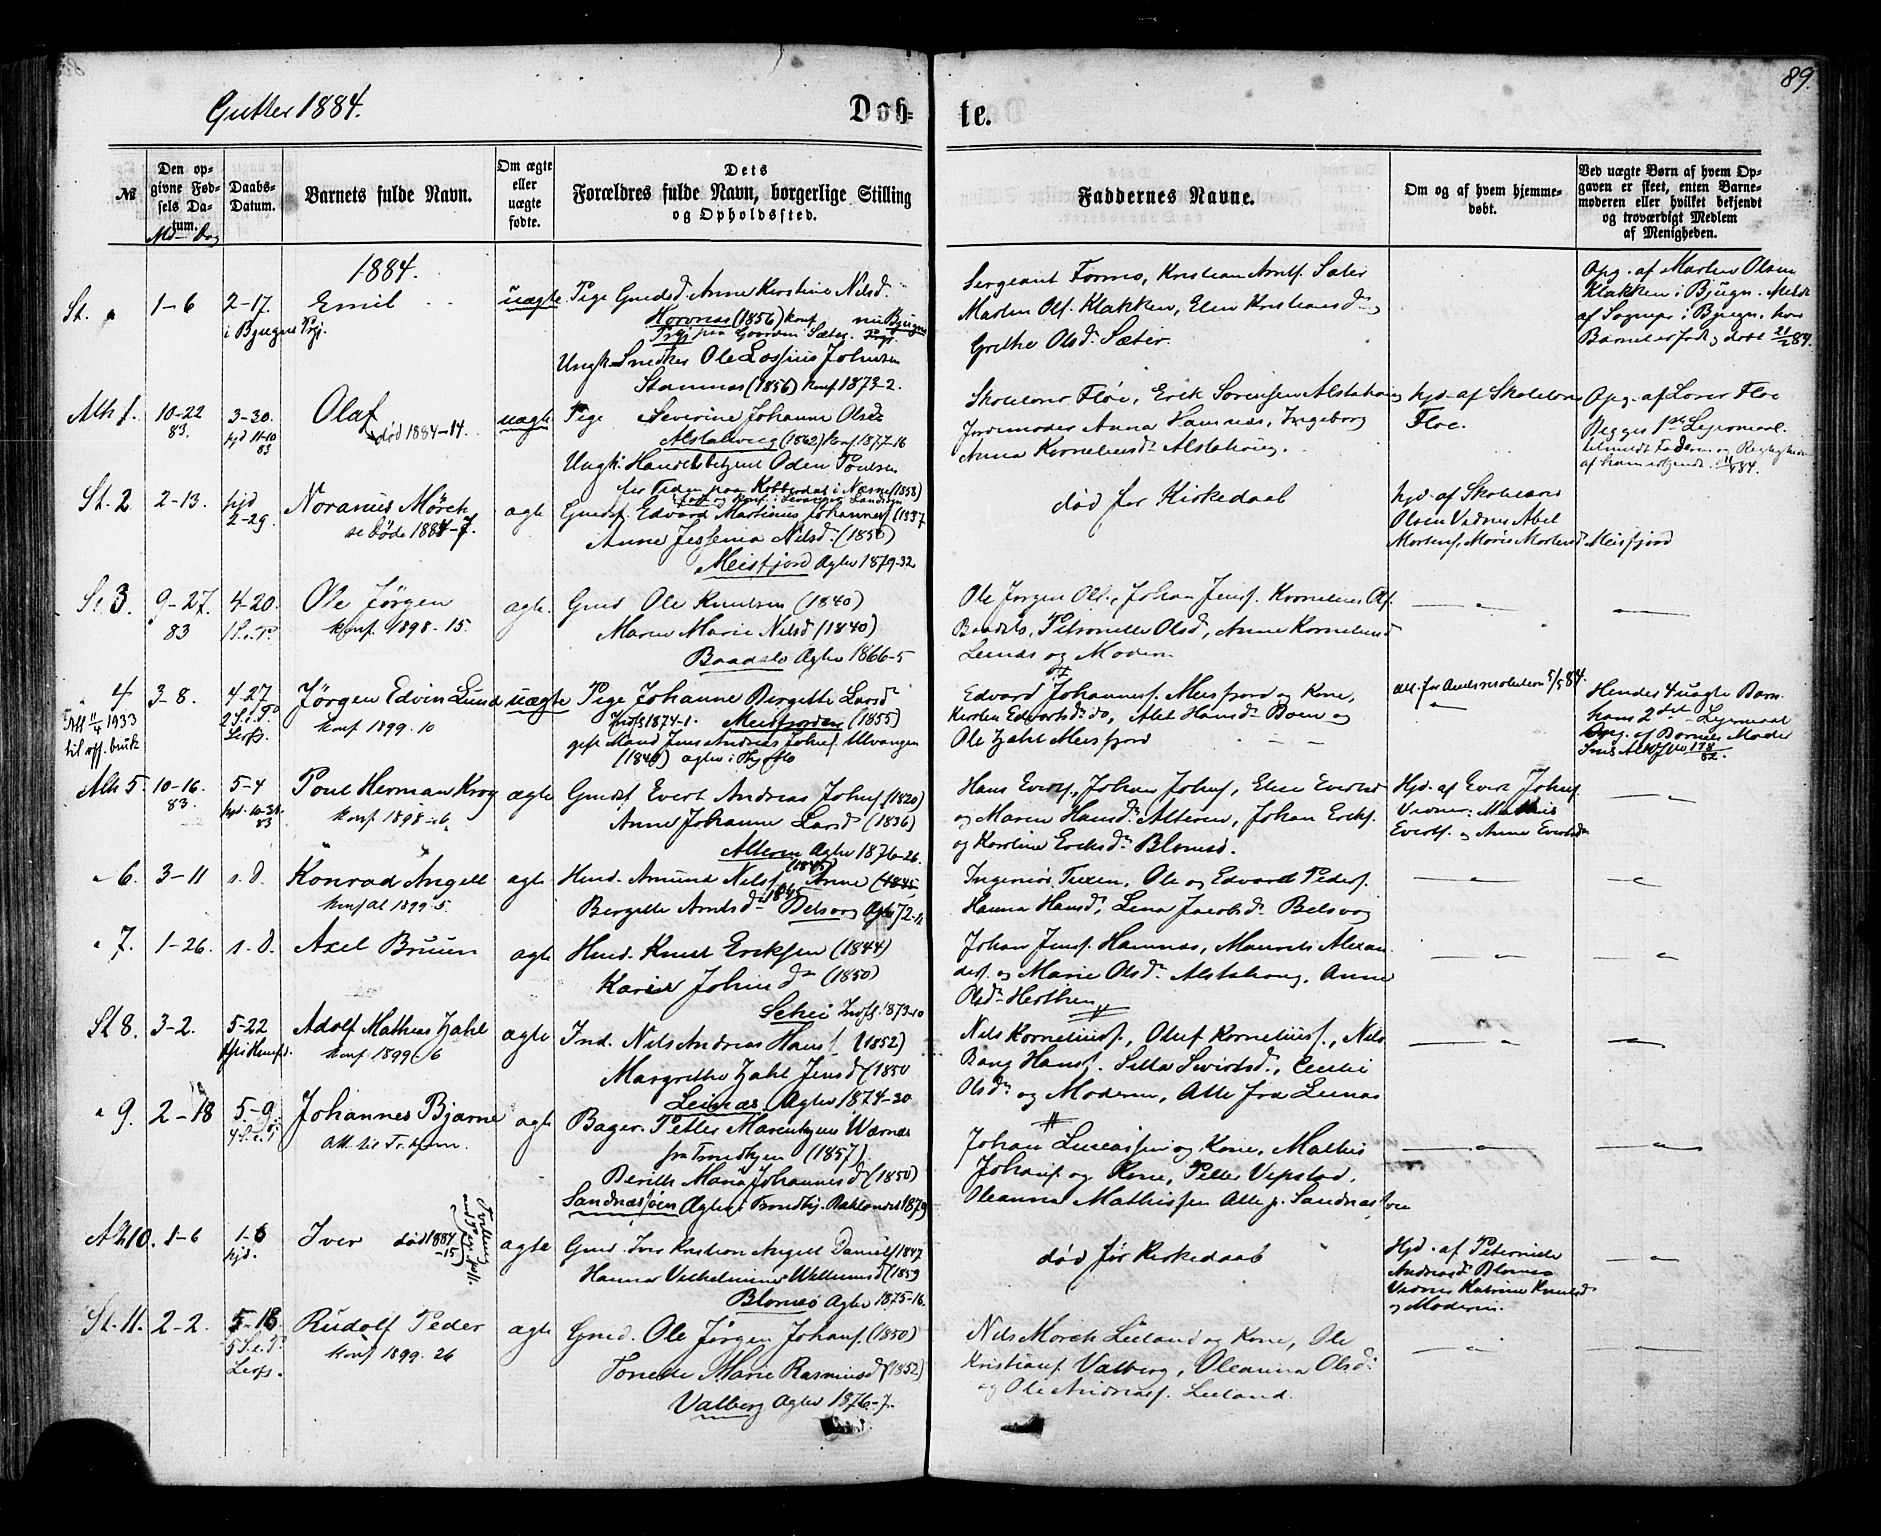 89.
Gutter 1884.
Døb-
te.
№
Den op-
givne Fød-
sels Da-
tum.
Md — Dag
Daabs-
Datum.
Barnets fulde Navn.
Om ægte
eller
uægte
fødte.
Dets
Forældres fulde Navn, borgerlige Stilling
og Opholdssted.
Faddernes Navne.
Om og af hvem hjemme-
døbt.
Ved uægte Børn af hvem Op-
gaven er skeet, enten Barne-
moderen eller hvilket bekjendt
og troværdigt Medlem
af Menigheden.
1884.
St. 1-6 2-17. Emil uægte Pige Gaardsd. Anne Kirstine Nilsd.
i Bjugns Prgj.
Hovnæs (1856) konf. nu Bjugns
Prgj paa Gaarden Sæter.
Ungk. Snedker Ole Lossius Johnsen
Stamnæs (1856) konf. 1873-2.
Sergeant Formo, Kristian Arntf. Sæter
Morten Ols. Klakken, Elen Kristiansd. og
Grethe Olsd. Sæter.
Opg. af Morten Olsen
Klakken i Bjugn. Meldt
af Sognepr. i Bjugn, hvor
Barnet er født og døbt 21/2 84.
Alh 1. 10-22 83. 3-30. hjd 11-10 83 Olaf død 1884-14. uægte
Pige Severine Johanne Olsd.
Alstahoug (1862) konf 1877-16
Ungk. Handelsbetjent Oden Poulsen
Skolelærer Floe, Erik Sørensen Alstahoug
Jordmoder Anna Hamnes, Ingeborg
Anna Korneliusd. Alstahoug.
hjd. af Skolelærer
Floe.
Opg. af Lærer Floe
Begges 1ste Leiermaal.
St. 2 2-13. hjd 2-29. Noranus Mörch se Døde 1884-7. ægte
Gaardsf. Edvard Martinus Johannesf. (1837
Anne Jessine Nilsd. (1850)
Meisfjord Agtev 1879-32
død før Kirkedaab
hjd. af Skolelærer
Olsen Vidner Abel
Mortensf., Marie Mortensd Meisfjord
St. 3. 9-27. 83 4-20. 1 S. e. P. Ole Jörgen konf. 1898-15. ægte.
Gmd Ole Knutsen (1840)
Maren Marie Nilsd (1840)
Baadslo Agtev 1866-5
Ole Jørgen Ols., Johan Jensf. Kornelius Ols.
Baadslo, Petronelle Olsd, Anne Korneliusd
Leinæs og Moderen
" 4 3-8. 4-27. 2 S. e. P. Leirf. Jørgen Edvin Lund konf 1899. 10 uægte
Att 11/4 1933
til off. bruk
Pige Johanne Bergitte Larsd
konf 1874-1. Meisfjorden (1855)
gift Mand Jens Andreas Johnsf. Ulvangen
Edvard Johannesf. Meisfjord og Kone,
Kirsten Edvardsd. do, Alet Hansd. Boen og
Ole Zahl Meisfjord
Hendes 4 uægte Barn
hans 2det Leiermaal
Opg. af Barnets Moder
Alh 5. 10-16. 83. 5-4 hjd. 10-31. 83 Poul Herman Krog konf. 1898-6. ægte
Gmdsf Evert Andreas Johnsf. (1820)
Anne Johanne Larsd (1836)
Alteren Agtev 1876-26.
Hans Evertsf., Johan Johnsf, Elise Evertsd
og Maren Hansd. Alteren, Johan Eriksf.
og Karoline Eriksd. Blomsö.
Hjd. af Evert Johnsf
Vidner: Mathis
Evertsf. og Anne Evertsd
" 6. 3-11 s. d. Konrad Angell konf 1899. 5. ægte
Huud. Amund Nilsf. (1845) Anne
Bergitte Arntsd. 1845 Belsvog Agtev 72-11
Ingeniör Tuxen, Ole og Edvardt Pedersf.
Hanna Hansd., Lena Jacobsd. Belsvog
" 7. 1-26. s. d. Axel Bruun ægte
Huud. Knut Eriksen (1844)
Karen Johnsd. (1850)
Schei 1873-10
Johan Jensf. Hamnes, Maurits Alexan-
dersf. og Marie Olsd. Alstahoug, Anne
Olsd. Herthen
St 8. 3-2. 5-22 Adolf Mathias Zahl konf. 1899. 6 ægte
Ind. Nils Andreas Hansf. (1852)
Margrethe Zahl Jensd (1850
Leinæs Agtev 1874-30
Nils Korneliusf., Oluf Korneliusf., Nils
Bang Hansf. Sella Sivertsd., Emilie
Olsd. og Moderen, Alle fra Leinæs
" 9. 2-18 5-9. Johannes Bjarne ægte
Bager Petter Marentzius Wærnes
fra Trondhjem (1857)
Berith Maria Johannesd (1850)
Sandnæsjøen Agtev i Trondhj. Baklandet 1879
Johan Lucassen og Kone, Mathis
Johansf. og Kone, Petter Vepstad,
Oleanna Mathissen Alle p. Sandnæsjøen
Alh 10. 1-6 1-6 hjd. Iver død 1884 -15 ægte
Gmd. Iver Kristian Angell Danielsf. 1847
Hanna Vilhelmine Willumsd (1859
Blomsö Agtev 1875-16.
død før Kirkedaab
Hjd. af Peternille
Andreasd. Blomsö
Vidner Katrine Knutsd
og Moderen.
St. 11. 2-2. 5-18 5 S. e. P. Leirf. Rudolf Peder konf 1899. 26 ægte
Gmd. Ole Jørgen Johansf. (1850)
Tonette Marie Rasmusd (1852)
Valberg Agtev 1876-7.
Nils Morch Leeland og Kone, Ole
Kristiansf. Valberg, Oleanna Olsd.
og Ole Andreasf. Leeland.